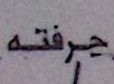 جرفته